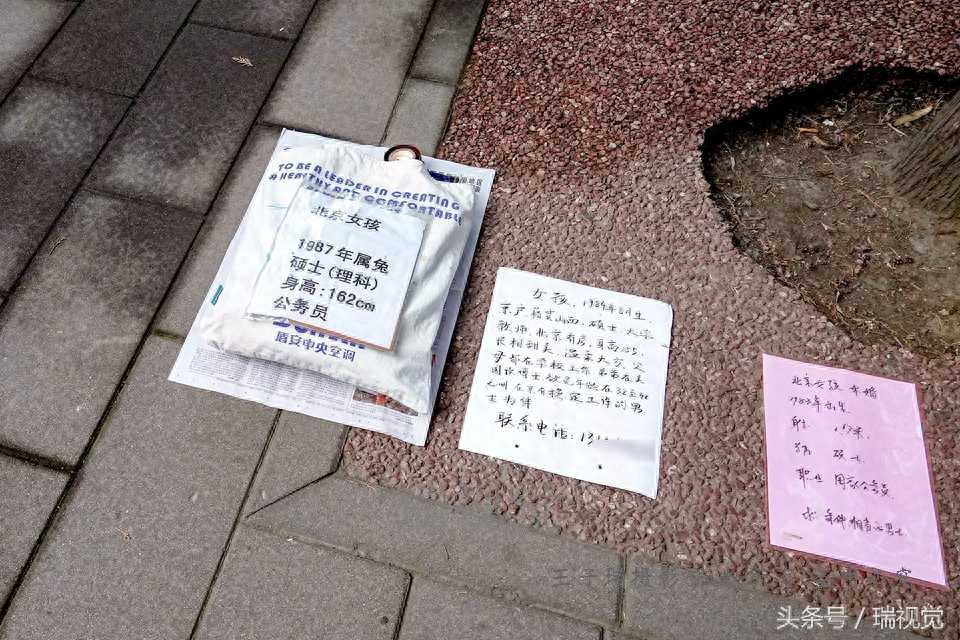 TO BE A LEADER IN CREATING
A HEALTHY AND COMFORTABLE
北京女孩
1987年属兔
硕士(理科)
身高:162cm
公务员
盾安中央空调
女孩、1984年8月生、
京户籍贯山西、硕士、大学
教师、北京有房、身高1.65、
长相甜美、温柔大方、父
母都在学校工作 弟弟在美
国读博士、欲觅年龄在32至42
之间在京有稳定工作的男
士为伴
联系电话:13
北京女孩 未婚
1983年出生
职业 国家公务员
求 条件相当的男士
头条号 / 瑞视觉